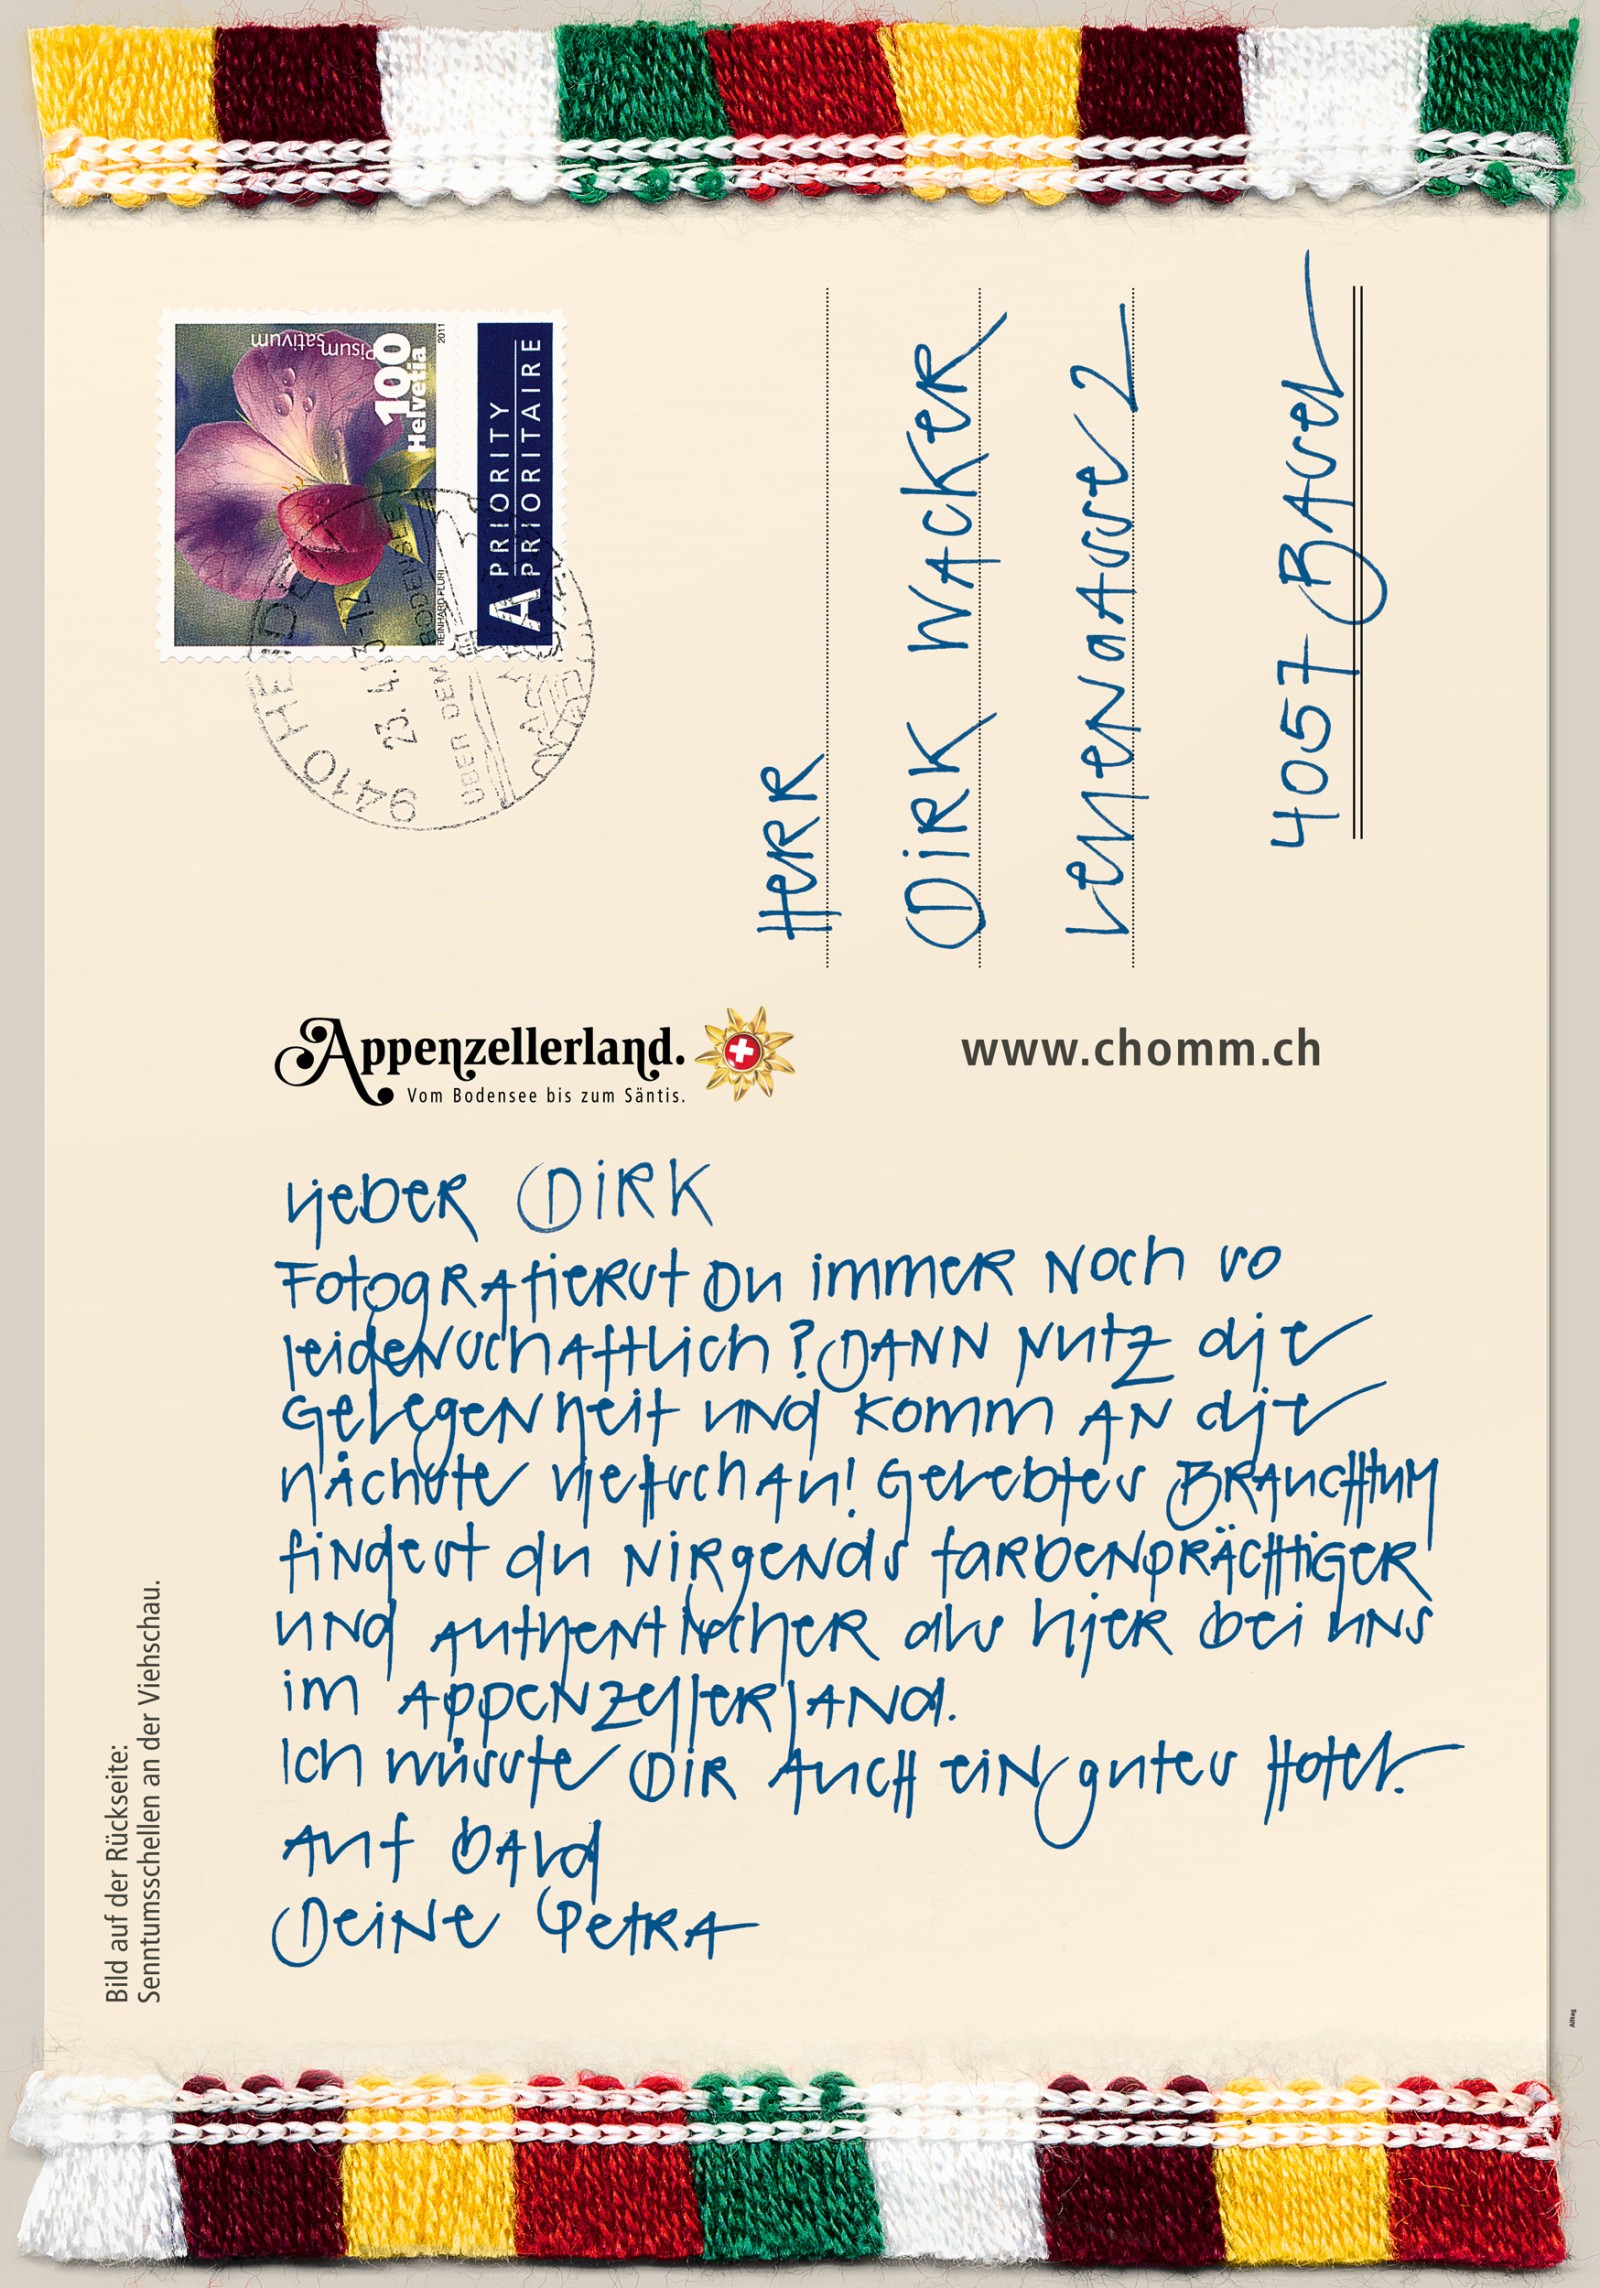 Pisum
sativum
100
Helvetia
2011
REINHARD FLURI
A
PRIORITY
PRIORITAIRE
9410 HEIDEN
23.4.13-12
ÜBER DEM BODENSEE
Herr
Dirk Wacker
4057 Basel
Appenzellerland.
Vom Bodensee bis zum Säntis.
www.chomm.ch
Lieber Dirk
Fotografierst Du immer noch so
leidenschaftlich? Dann nutz die
Gelegenheit und komm an die
nächste Viehschau! Gelebtes Brauchtum
findest du nirgends farbenprächtiger
und authentischer als hier bei uns
im Appenzellerland.
Ich wüsste Dir auch ein gutes Hotel.
Auf bald
Deine Petra
Bild auf der Rückseite:
Senntumsschellen an der Viehschau.
Alltag